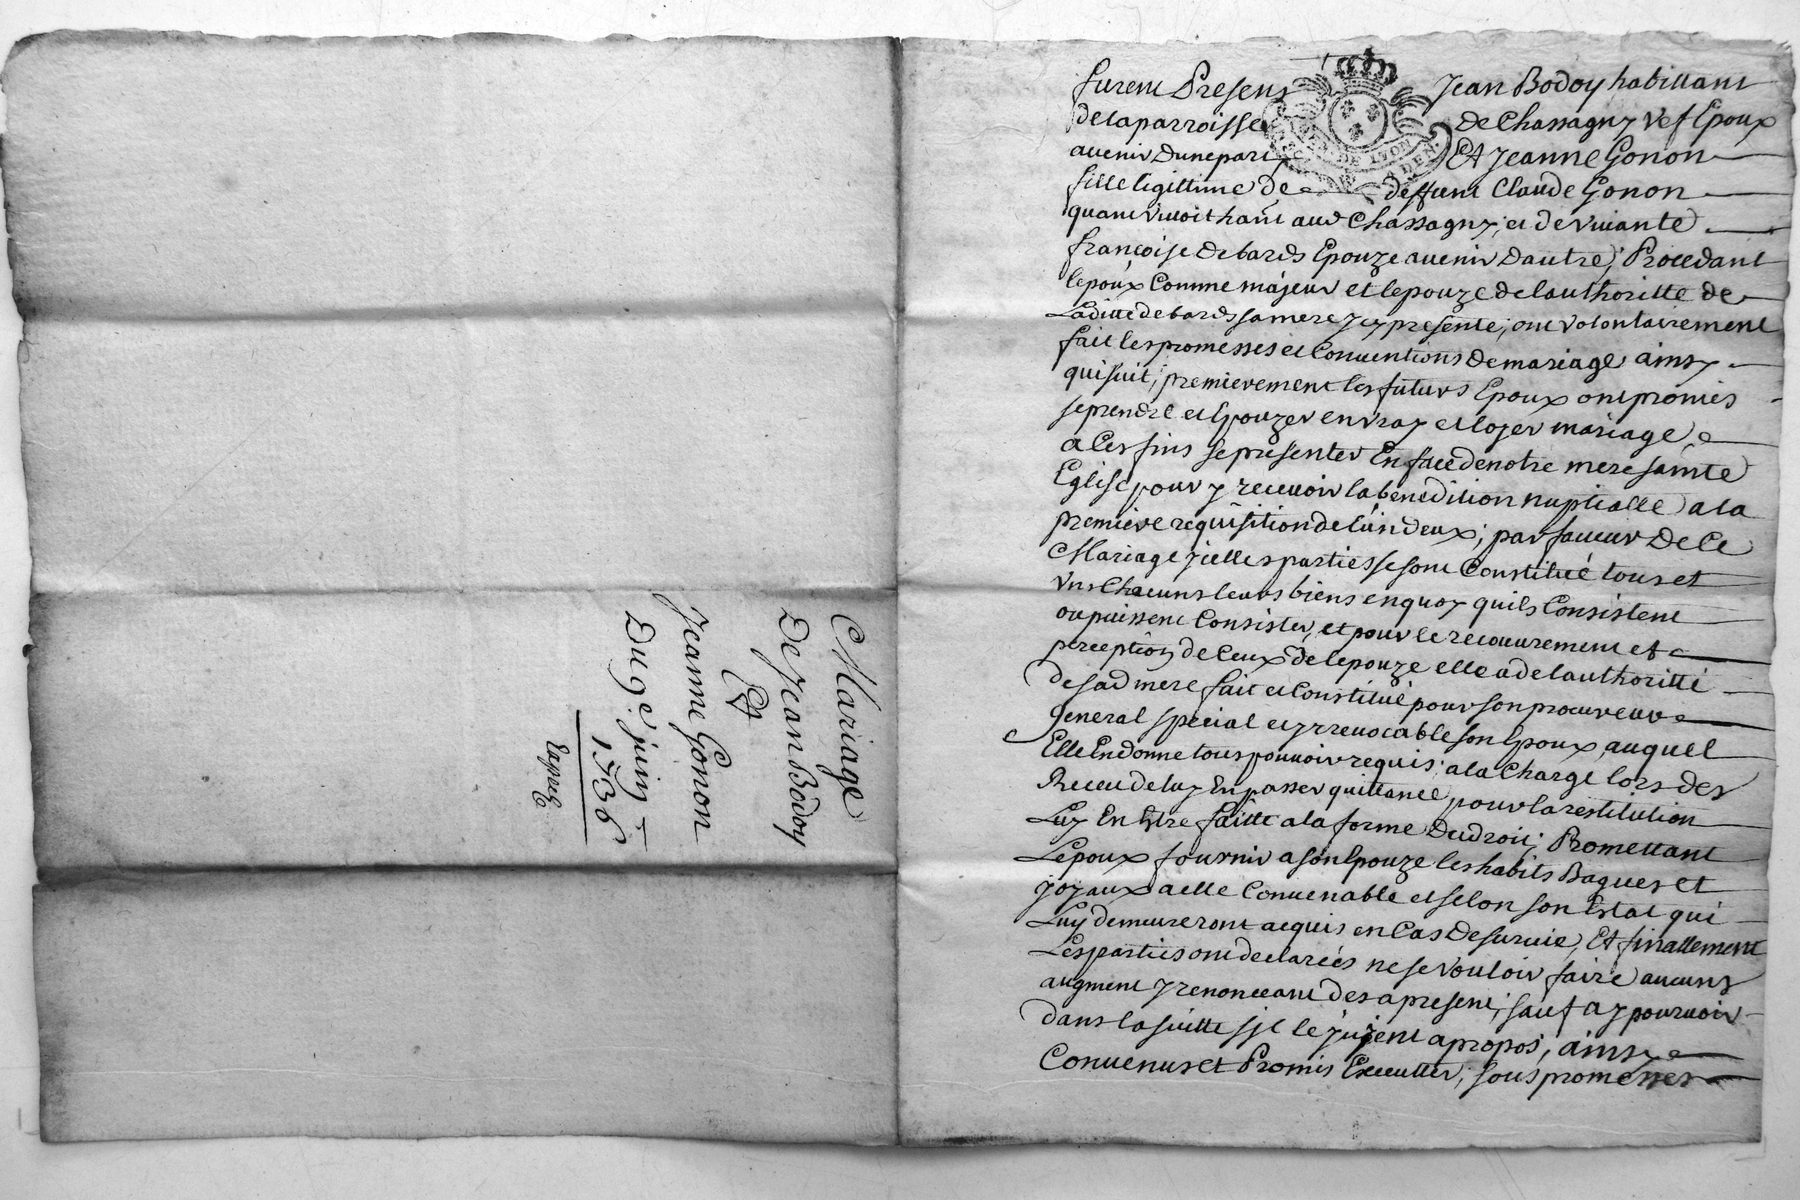 Mariage
De Jean Bodoy
Et
Jeanne Gonon
Du 9e juin
1736
furent Presens Jean Bodoy habittant
de la parroisse de Chassagny vef Epoux
avenir dunepart Et Jeanne Gonon
fille legittime de deffunt Claude Gonon
quant vivoit hant aud Chassagny, et de vivante
francoise Debards Epouze avenir Dautre, Procedant
lepoux Comme majeur et lepouze de lauthoritte de
Laditte debards sa mere jcy presente, ont volontairement
fait les promesses et Conventions de mariage ainsy
qui suit, premierement les futurs Epoux ont promis
se prendre et Epouzer en vray et loyer mariage
a Ces fins se presenter En face de notre mere sainte
Eglise pour y recevoir la benedition nuptialle a la
premiere requisition de lun deux, par faveur De Ce
Mariage jcelles parties se sont Constitué tous et
vns Chacuns leurs biens en quoy quils Consistent
ou puissent Consister, et pour le recouvrement et
perception de Ceux de lepouze elle a de lauthoritté
de sad mere fait et Constitué pour son procureur
general special et yrrevocable son Epoux, auquel
Elle En donne tous pouvoir requis, a la Charge lors des
Receu de luy En passer quittance pour la restitution
Luy En Estre faitte a la forme Du droit, Promettant
Lepoux fournir a son Epouze les habits Bagues et
joyaux a elle Convenable et selon son Estat qui
Luy demeureront acquis en Cas De survie, Et finallement
Les parties ont declarées ne se vouloir faire aucuns
augment y renonceant des a present, sauf a y pourvoir
dans la suitte sjl le jujent a propos, ainsy
Convenus et Promis Executter, sous promesses